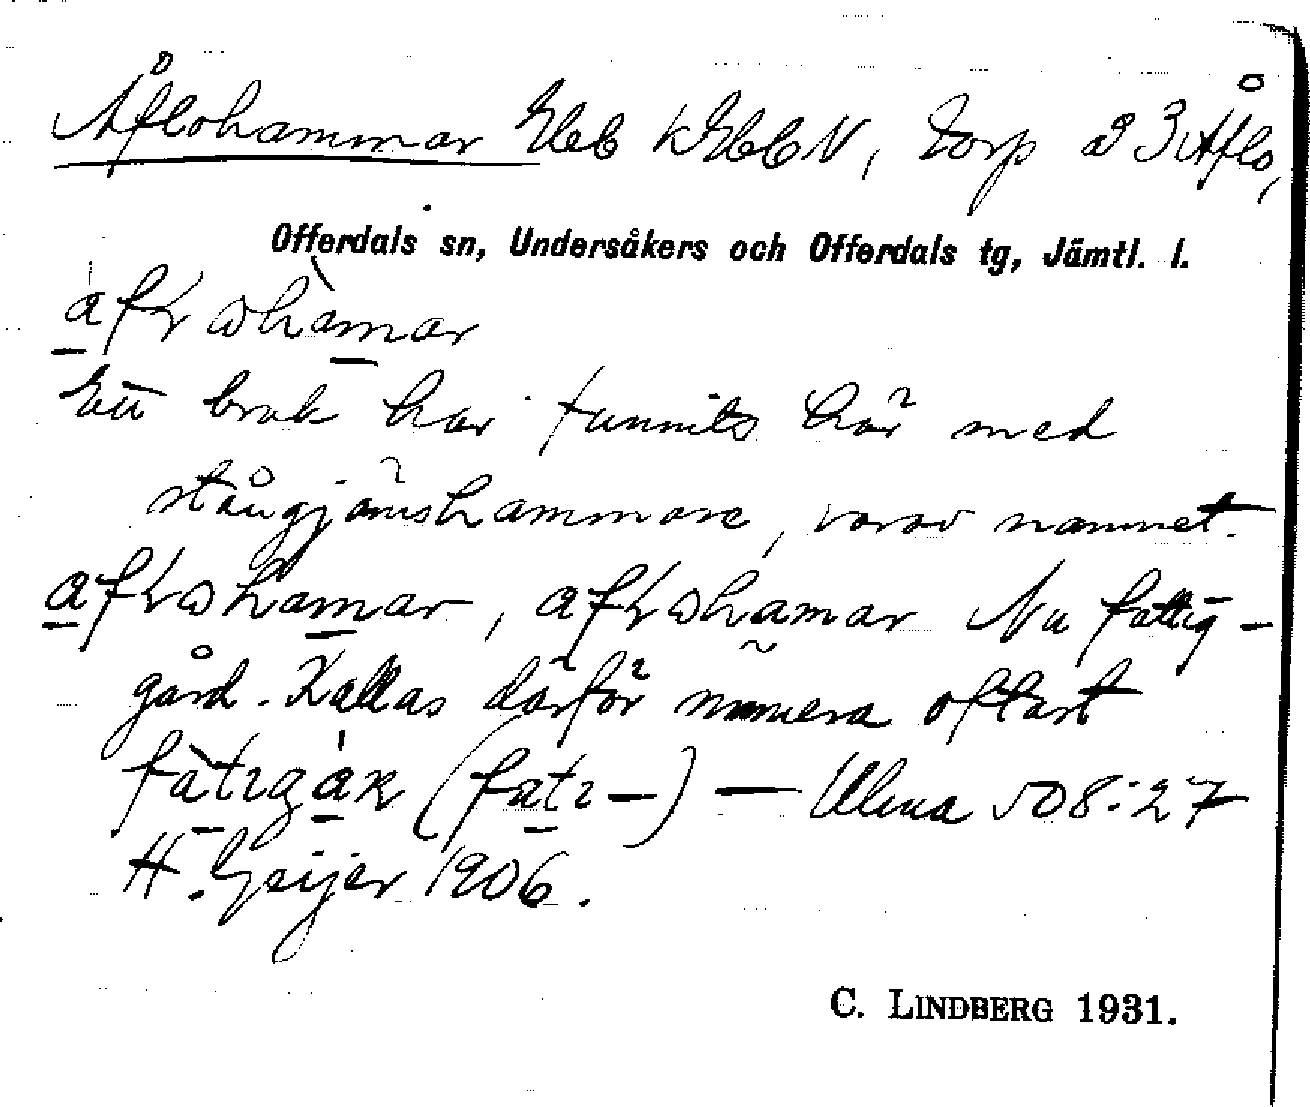 Åflohammar Eleb kEbbN, Torp å 3 Åflo,
Offerdals sn, Undersåkers och Offerdals tg, Jämtl. l.
Ett bruk har funnits här med
stångjärnshammare, varav namnet.
Nu fattig-
gård. Kallas därför numera oftast
— Ulma 508:27
H. Geijer 1906.
C. LINDBERG 1931.